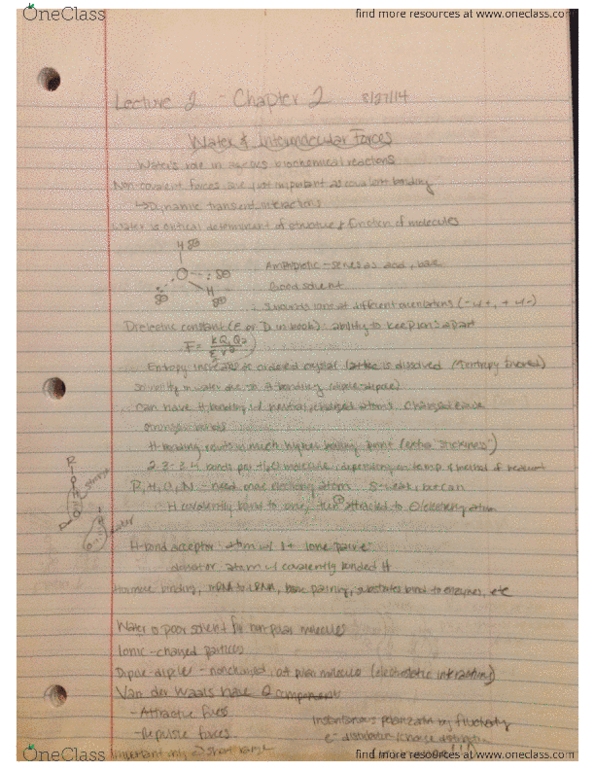 OneClass find more resources at www.oneclass.com
Lecture 2 - Chapter 2 8/27/14
Water & Intermolecular Forces
Water's role in biochemical reactions
Non-covalent forces are just important as covalent bonding
↳ Dynamic transient interactions
Water is critical determinant of structure & function of molecules
H
O
H
Amphipatic - serves as acid, base
Good solvent
Surrounds ions at different orientations
Dielectric constant (E or D in book): ability to keep ions apart
F = kQ1Q2 / εr²
Entropy increase as ordered crystal lattice is dissolved (entropy favored)
solubility in water due to H-bonding (dipole-dipole)
Can have H-bonding w/ neutral, charged atoms. Charged
stronger
H-bonding results in much higher boiling point (extra stickiness)
2.3-3.4 bonds per H2O molecule (depending on temp & method of
need one electroneg atom S-weak, but can
H covalently bond to one, then attracted to electroneg atom
R
O
H
stronger
weaker
H-bond acceptor: atom w/ 1+ lone pair e-
donator: atom w/ covalently bonded H
Hormone binding, base pairing, substrates bind to enzymes, etc
Water a poor solvent for non-polar molecules
Ionic - charged particles
Dipole-dipole - noncharged, polar molecules (electrostatic interactions)
Van der Waals have 2 components
- Attractive forces
- Repulsive forces
Instantaneous polarization by fluctuating
e- distribution/charge distribution
Important only short range
OneClass find more resources at www.oneclass.com